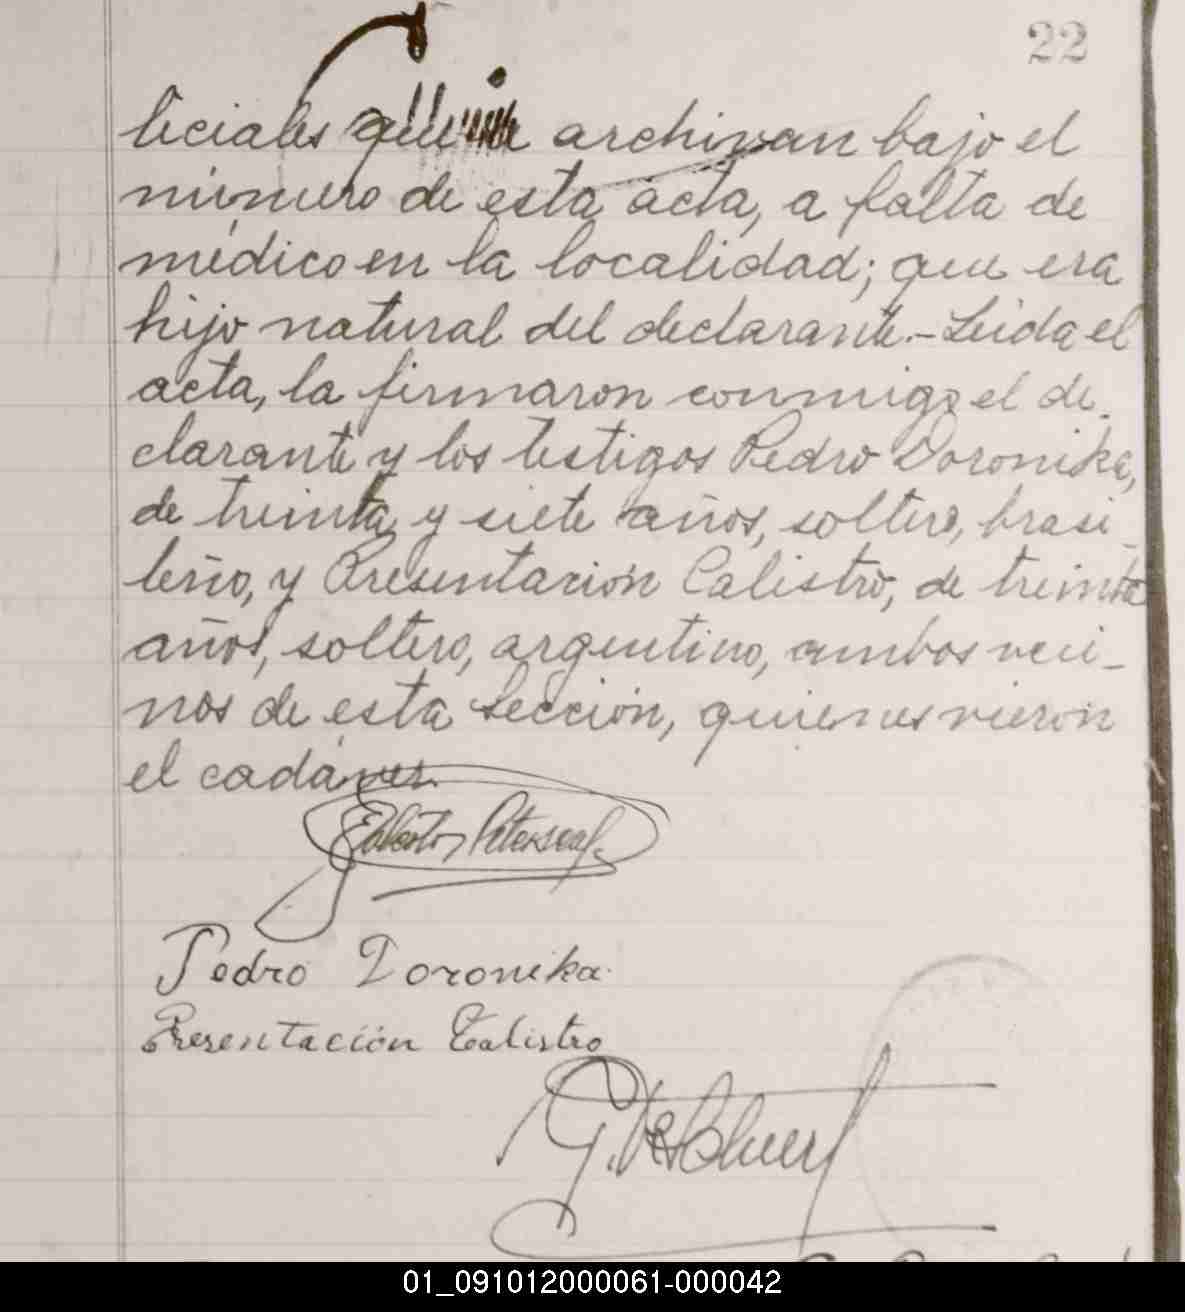 22
liciales que se archivan bajo el
número de esta acta, a falta de
médico en la localidad; que era
hijo natural del declarante.- Leida el
acta, la firmaron conmigo el de-
clarante y los testigos Pedro Doronika,
de treinta y siete años, soltero, brasi-
leño, y Presentación Calistro, de treinta
años, soltero, argentino, ambos veci-
nos de esta Sección, quienes vieron
el cadáver.
Petersen
Pedro Doronika
Presentación Calistro
01_091012000061-000042